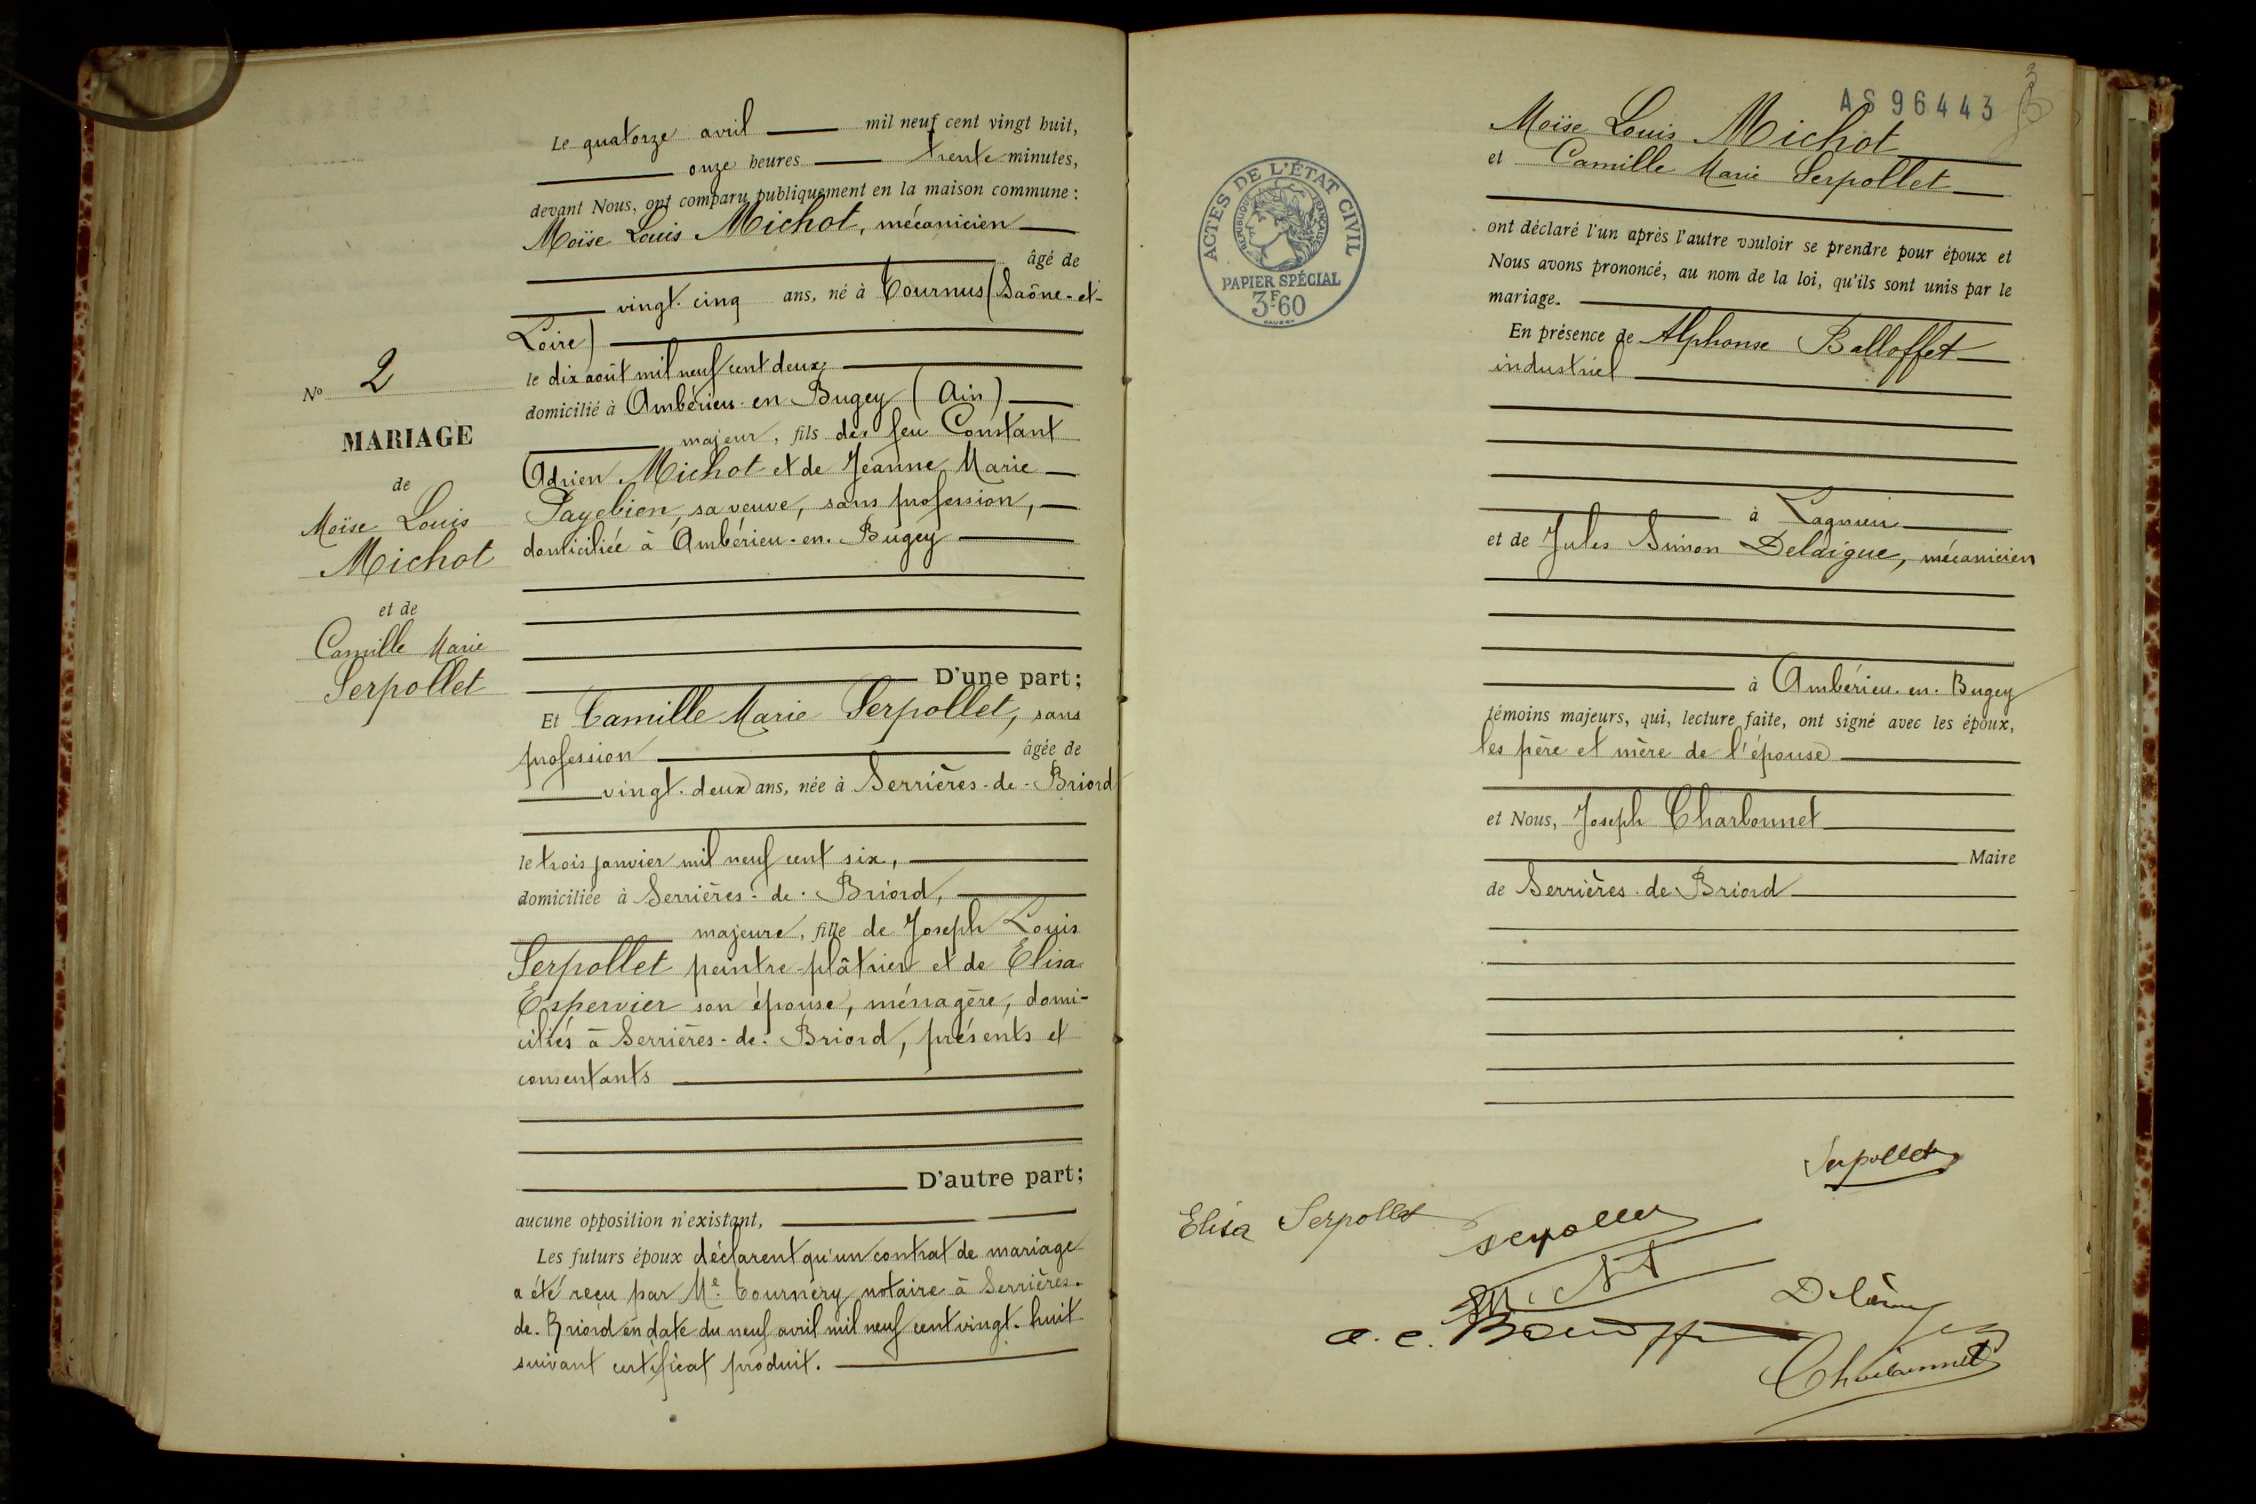 Le quatorze avril mil neuf cent vingt huit,
onze heures trente minutes,
devant Nous, ont comparu publiquement en la maison commune :
Moïse Louis Michot, mécanicien
âgé de
vingt-cinq ans, né à Tournus (Saône-et-
Loire)
le dix août mil neuf cent deux,
domicilié à Ambérieu-en-Bugey (Ain)
majeur, fils de feu Constant
Adrien Michot et de Jeanne Marie
Payebien, sa veuve, sans profession,
domiciliée à Ambérieu-en-Bugey
No 2
MARIAGE
de
Moïse Louis
Michot
et de
Camille Marie
Serpollet
D'une part ;
Et Camille Marie Serpollet, sans
profession âgée de
vingt-deux ans, née à Serrières-de-Briord
le trois janvier mil neuf cent six,
domiciliée à Serrières-de-Briord,
majeure, fille de Joseph Louis
Serpollet peintre-plâtrier et de Elisa
Espervier son épouse, ménagère, domi-
ciliés à Serrières-de-Briord, présents et
consentants
D'autre part ;
aucune opposition n'existant,
Les futurs époux déclarent qu'un contrat de mariage
a été reçu par Me Tournery notaire à Serrières-
de-Briord en date du neuf avril mil neuf cent vingt-huit
suivant certificat produit.
AS96443
3
ACTES DE L'ÉTAT CIVIL
RÉPUBLIQUE FRANÇAISE
PAPIER SPÉCIAL
3F60
Moïse Louis Michot
et Camille Marie Serpollet
ont déclaré l'un après l'autre vouloir se prendre pour époux et
Nous avons prononcé, au nom de la loi, qu'ils sont unis par le
mariage.
En présence de Alphonse Balloffet
industriel
à Lagnieu
et de Jules Simon Delaigue, mécanicien
à Ambérieu-en-Bugey
témoins majeurs, qui, lecture faite, ont signé avec les époux,
les père et mère de l'épouse
et Nous, Joseph Charbonnet
Maire
de Serrières-de-Briord
Serpollet
Elisa Serpollet
Serpollet
Charbonnet